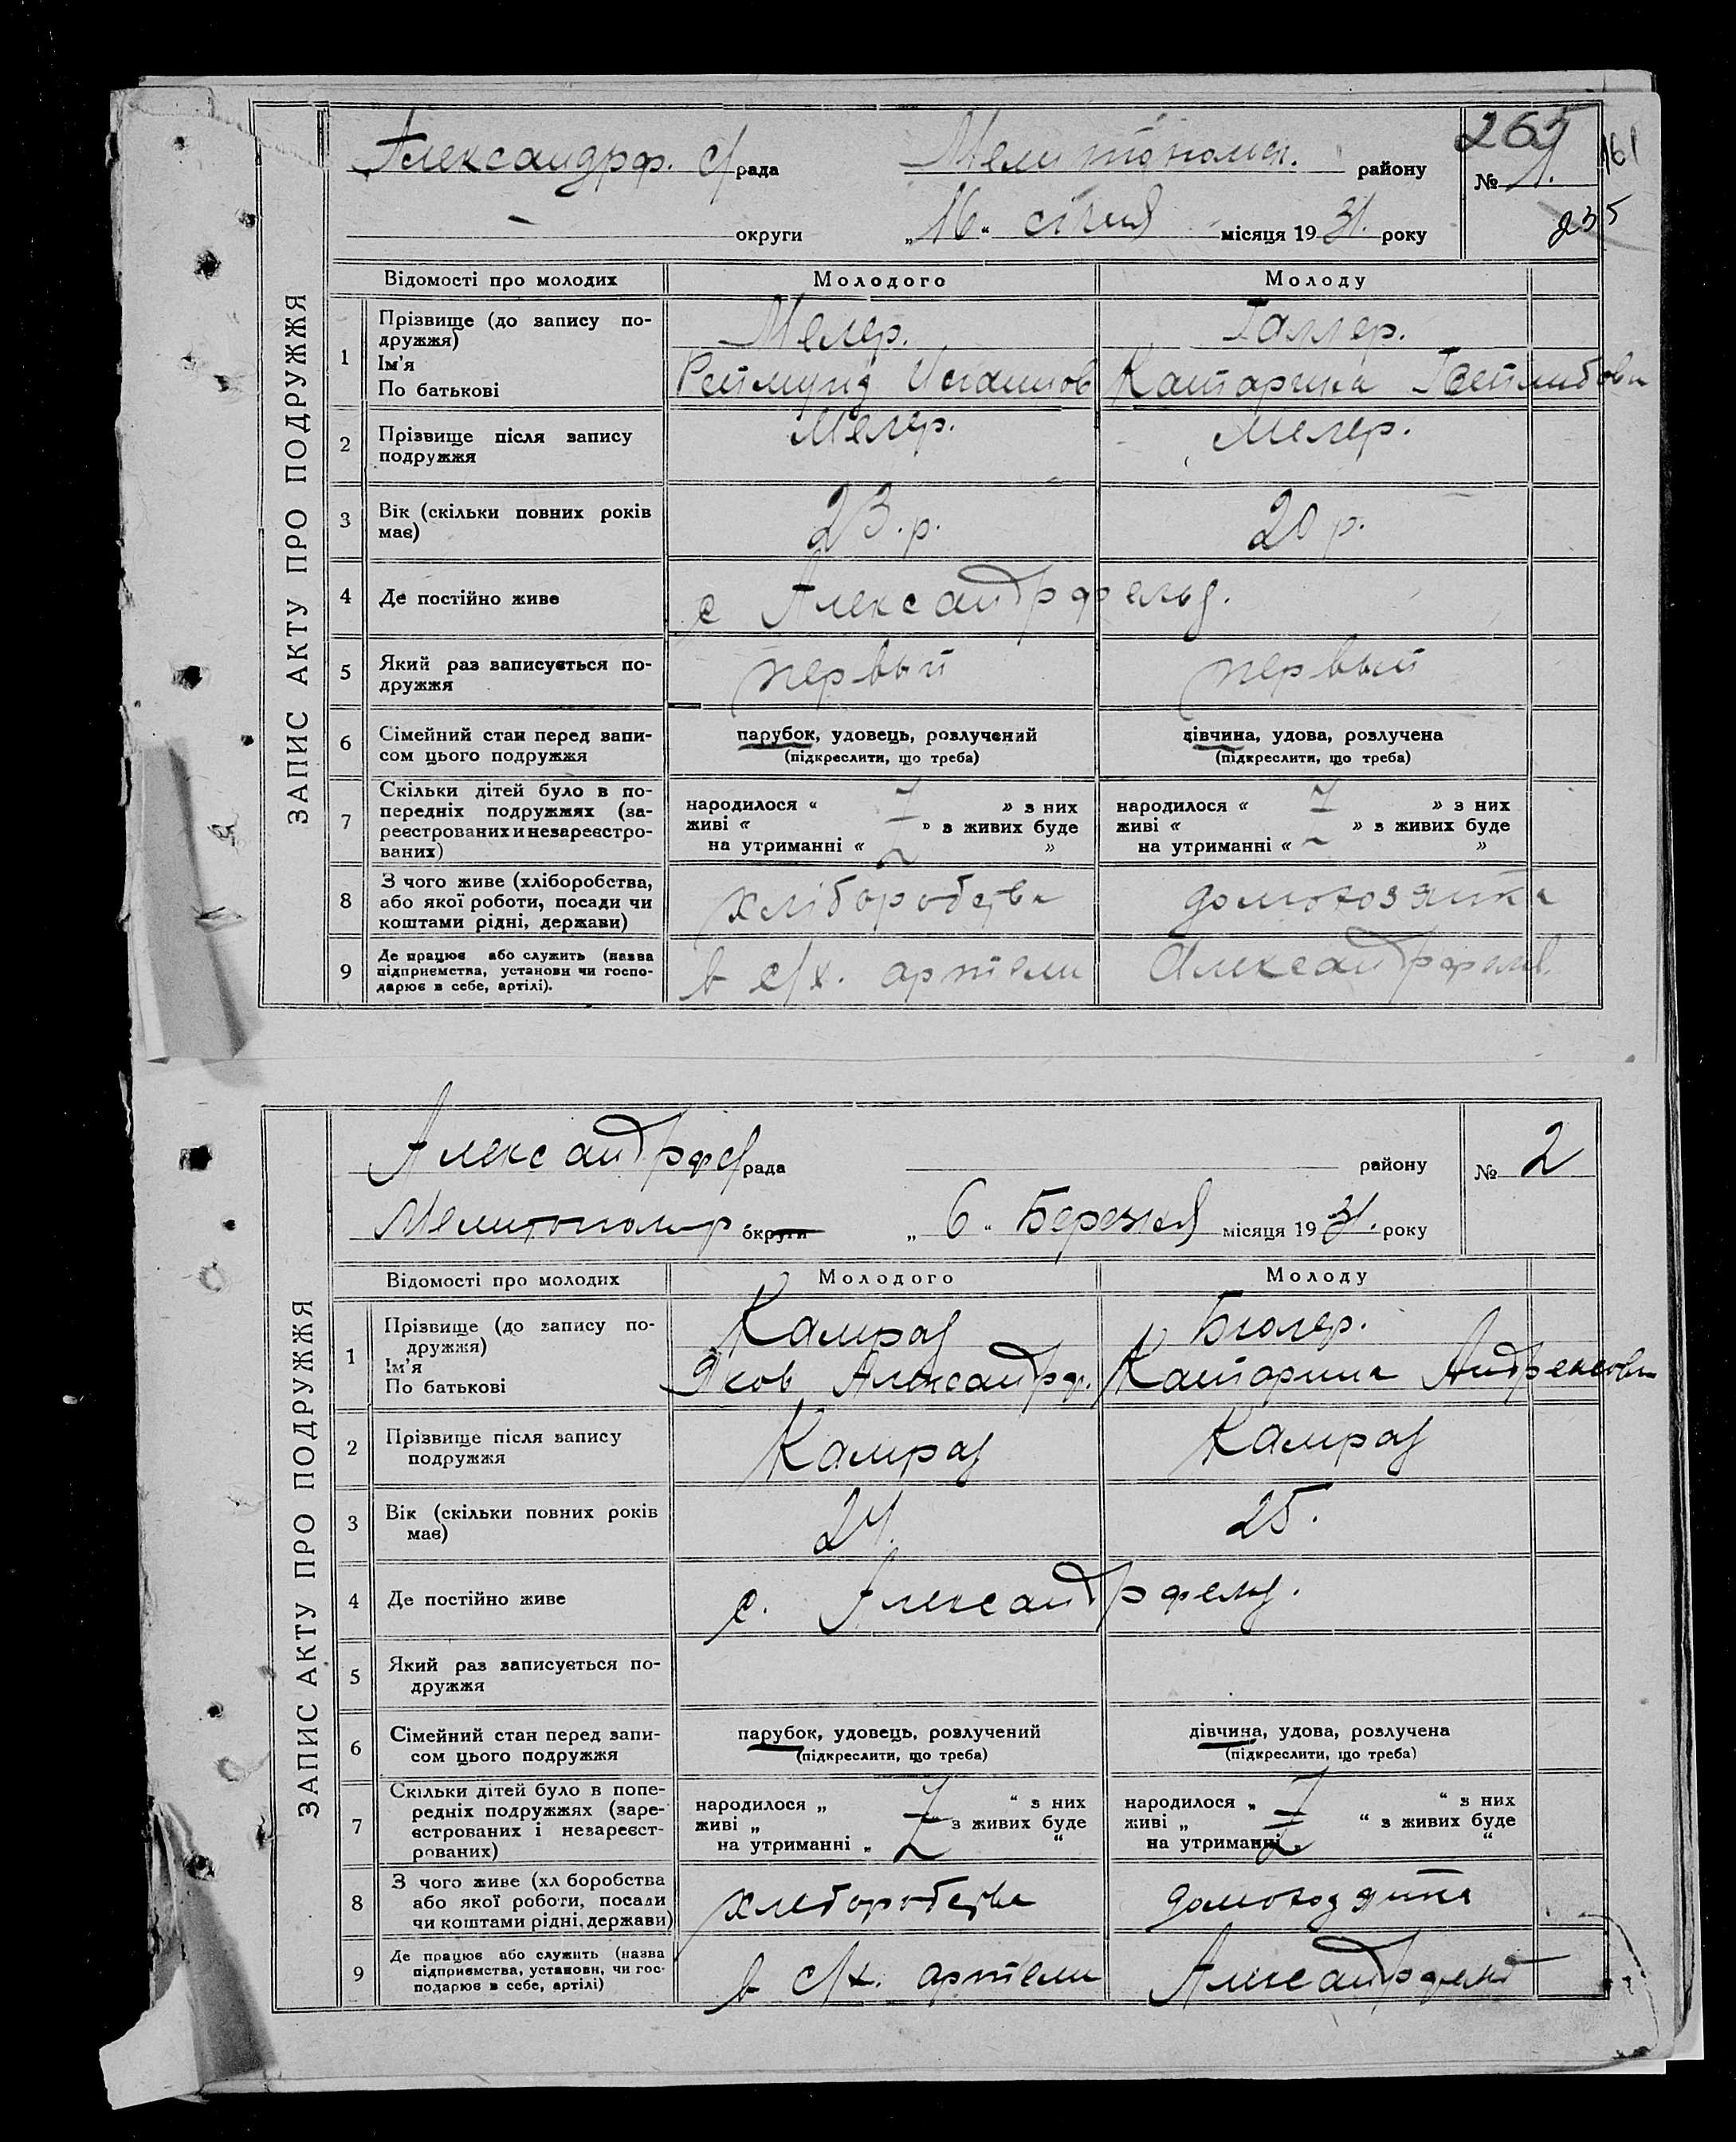 265
161
235
ЗАПИС АКТУ ПРО ПОДРУЖЖЯ
Александрф. с/рада Мелитопольск. району № 1.
— округи „16“ січня місяця 1931. року
Відомості про молодих Молодого Молоду
1 Прізвище (до запису по-
дружжя) Мелер. Галлер.
Ім'я
По батькові Реймунд Катарина
2 Прізвище після запису
подружжя Мелер. Мелер.
3 Вік (скільки повних років
має) 23.р. 20 р.
4 Де постійно живе с Александрфельд.
5 Який раз записується по-
дружжя первый первый
6 Сімейний стан перед запи-
сом цього подружжя
парубок, удовець, розлучений дівчина, удова, розлучена
(підкреслити, що треба) (підкреслити, що треба)
7 Скільки дітей було в по-
передніх подружжях (за-
реєстрованих и незареєстро-
ваних)
народилося « » з них народилося « » з них
живі « » з живих буде живі « » з живих буде
на утриманні « » на утриманні « »
8 З чого живе (хліборобства,
або якої роботи, посади чи
коштами рідні, держави) хліборобства домохозяйка
9 Де працює або служить (назва
підприємства, установи чи госпо-
дарює в себе, артілі). в с/х. артели Александрфельд.
ЗАПИС АКТУ ПРО ПОДРУЖЖЯ
Александрф с/рада району № 2
Мелитопольр округи „6“ Березня місяця 1931. року
Відомості про молодих Молодого Молоду
1 Прізвище (до запису по-
дружжя) Камрад Бюлер.
Ім'я
По батькові Яков Александр. Катарина Андреасовн
2 Прізвище після запису
подружжя Камрад Камрад
3 Вік (скільки повних років
має) 24. 25.
4 Де постійно живе с. Александрфельд.
5 Який раз записується по-
дружжя
6 Сімейний стан перед запи-
сом цього подружжя
парубок, удовець, розлучений дівчина, удова, розлучена
(підкреслити, що треба) (підкреслити, що треба)
7 Скільки дітей було в попе-
редніх подружжях (заре-
єстрованих і незареєст-
рованих)
народилося „ “ з них народилося „ “ з них
живі „ з живих буде живі „ “ з живих буде
на утриманні „ “ на утриманні „ “
8 З чого живе (хл боробства
або якої роботи, посади
чи коштами рідні, держави) хлеборобства домохозяйка
9 Де працює або служить (назва
підприємства, установи, чи гос-
подарює в себе, артілі) в с/х. артели Александрфельд